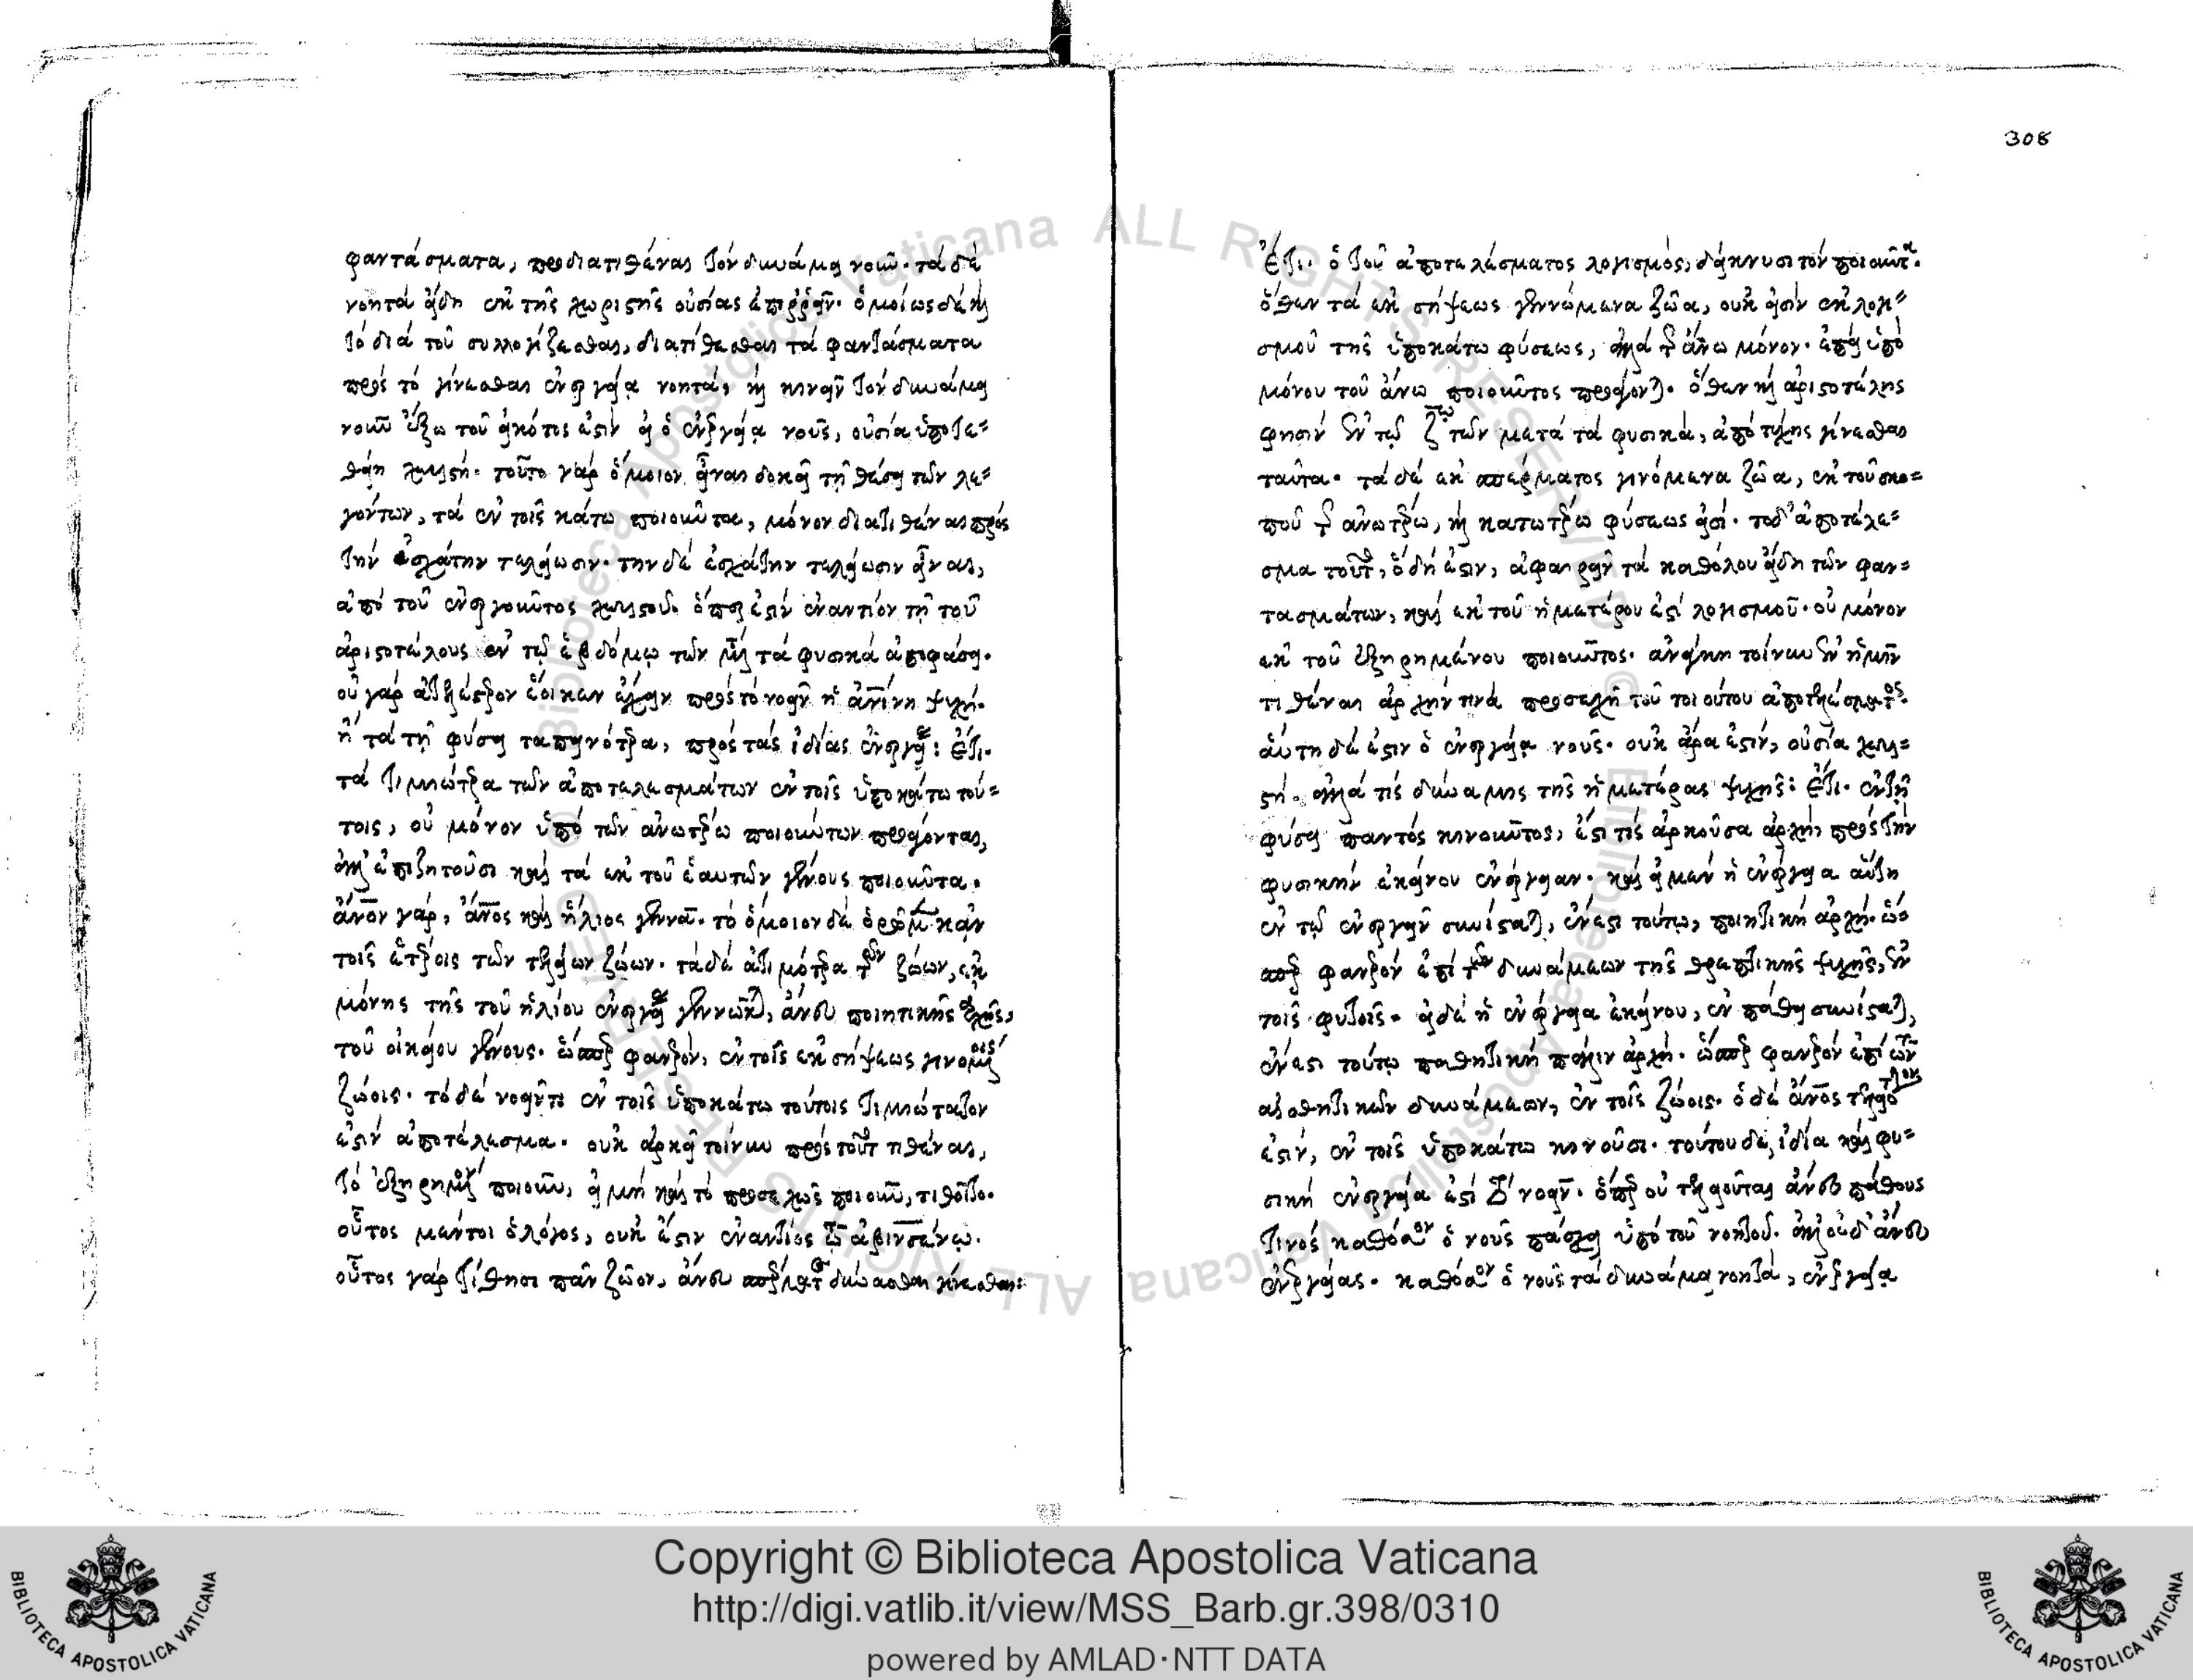 φαντάσματα, προδιατιθέναι τὸν δυνάμει νοῦν. τὰ δὲ
νοητὰ εἴδη ἐκ τῆς χωριστῆς οὐσίας ἐπιρρεῖν. ὁμοίως δὲ καὶ
τὸ διὰ τοῦ συλλογίζεσθαι, διατίθεσθαι τὰ φαντάσματα
πρὸς τὸ γίνεσθαι ἐνεργείᾳ νοητά, καὶ κινεῖν τὸν δυνάμει
νοῦν ἔξω τοῦ εἰκότος ἐστὶν εἰ ὁ ἐνεργείᾳ νοῦς, οὐσία ὑποτε=
θείη χωριστή. τοῦτο γὰρ ὅμοιον εἶναι δοκεῖ τῇ θέσει τῶν λε=
γόντων, τὰ ἐν τοῖς κάτω ποιοῦντα, μόνον διατιθέναι πρὸς
τὴν ἐσχάτην τελείωσιν. τὴν δὲ ἐσχάτην τελείωσιν εἶναι,
ἀπὸ τοῦ ἐνεργοῦντος χωριστοῦ. ὅπερ ἐστὶν ἐναντίον τῇ τοῦ
ἀριστοτέλους ἐν τῷ ἑβδόμῳ τῶν μετὰ τὰ φυσικὰ ἀποφάσει.
οὐ γὰρ ἀτελέστερον ἔοικεν ἔχειν πρὸς τὸ νοεῖν ἡ ἀνίνη ψυχή.
ἢ τὰ τῇ φύσει ταπεινότερα, πρὸς τὰς ἰδίας ἐνεργείας: ἔτι.
τὰ τιμιώτερα τῶν ἀποτελεσμάτων ἐν τοῖς ὑποκάτω τού=
τοις, οὐ μόνον ὑπὸ τῶν ἀνωτέρω ποιούντων προϊόντα,
ἀλλ' ἐπιζητοῦσι καὶ τὰ ἐκ τοῦ ἑαυτῶν γένους ποιοῦντα.
ἄνον γὰρ, ἄνος καὶ ἥλιος γεννᾷ. τὸ ὅμοιον δὲ ὁρῶμεν κἀν
τοῖς ἑτέροις τῶν τελείων ζώων. τὰ δὲ ἀτιμότερα τῶν ζώων, ἐκ
μόνης τῆς τοῦ ἡλίου ἐνεργείας γεννῶνται, ἄνευ ποιητικῆς ἀρχῆς,
τοῦ οἰκείου γένους. ὥσπερ φανερὸν, ἐν τοῖς ἐκ σήψεως γινομένοις
ζώοις. τὸ δὲ νοεῖν τι ἐν τοῖς ὑποκάτω τούτοις τιμιώτατον
ἐστὶν ἀποτέλεσμα. οὐκ ἀρκεῖ τοίνυν πρὸς τοῦτο τιθέναι,
τὸ ἐξῃρημένον ποιοῦν, εἰ μὴ καὶ τὸ προσεχῶς ποιοῦν, τιθοῖτο.
οὗτος μέντοι ὁ λόγος, οὐκ ἔστιν ἐναντίος τῷ ἀβινσένῳ.
οὗτος γὰρ τίθησι πᾶν ζῶον, ἄνευ σπέρματος δύνασθαι γίνεσθαι:
308
ἔτι. ὁ τοῦ ἀποτελέσματος λογισμὸς, δείκνυσι τὸν ποιοῦντα.
ὅθεν τὰ ἐκ σήψεως γεννώμενα ζῶα, οὐκ εἰσὶν ἐκ λογι=
σμοῦ τῆς ὑποκάτω φύσεως, ἀλλὰ τῆς ἄνω μόνον. ἐπεὶ ὑπὸ
μόνου τοῦ ἄνω ποιοῦντος προΐονται. ὅθεν καὶ ἀριστοτέλης
φησὶν ἐν τῷ ζῳ τῶν μετὰ τὰ φυσικὰ, ἀπὸ τύχης γίνεσθαι
ταῦτα. τὰ δὲ ἐκ σπέρματος γινόμενα ζῶα, ἐκ τοῦ σκο=
ποῦ τῆς ἀνωτέρω, καὶ κατωτέρω φύσεως εἰσί. τοδ' ἀποτέλε=
σμα τοῦτο, ὃ δή ἐστιν, ἀφαιρεῖν τὰ καθόλου εἴδη τῶν φαν=
τασμάτων, καὶ ἐκ τοῦ ἡμετέρου ἐστὶ λογισμοῦ. οὐ μόνον
ἐκ τοῦ ἐξῃρημένου ποιοῦντος. ἀνάγκη τοίνυν ἐν ἡμῖν
τιθέναι ἀρχήν τινα προσεχῆ τοῦ τοιούτου ἀποτελέσματος.
αὕτη δέ ἐστιν ὁ ἐνεργείᾳ νοῦς. οὐκ ἄρα ἐστὶν, οὐσία χωρι=
στή. ἀλλὰ τὶς δύναμις τῆς ἡμετέρας ψυχῆς: ἔτι. ἐν τῇ
φύσει παντὸς κινοῦντος, ἐστί τις ἀρκοῦσα ἀρχὴ, πρὸς τὴν
φυσικὴν ἐκείνου ἐνέργειαν. καὶ εἰ μὲν ἡ ἐνέργεια αὕτη
ἐν τῷ ἐνεργεῖν συνίσταται, ἔνεστι τούτῳ, ποιητικὴ ἀρχή. ὥσ
περ φανερὸν ἐπὶ τῶν δυνάμεων τῆς θρεπτικῆς ψυχῆς, ἐν
τοῖς φυτοῖς. εἰ δὲ ἡ ἐνέργεια ἐκείνου, ἐν πάθει συνίσταται,
ἔνεστι τούτῳ παθητικὴ πάλιν ἀρχή. ὥσπερ φανερὸν ἐπὶ τῶν
αἰσθητικῶν δυνάμεων, ἐν τοῖς ζώοις. ὁ δὲ ἄνος τελειότερον
ἐστὶν, ἐν τοῖς ὑποκάτω κινοῦσι. τούτου δὲ, ἰδία καὶ φυ=
σικὴ ἐνέργεια ἐστὶ τὸ νοεῖν. ὅπερ οὐ τελειοῦται ἄνευ πάθους
τινὸς καθόσον ὁ νοῦς πάσχει ὑπὸ τοῦ νοητοῦ. ἀλλ' οὐδ' ἄνευ
ἐνεργείας. καθόσον ὁ νοῦς τὰ δυνάμει νοητὰ, ἐνεργείᾳ
Copyright © Biblioteca Apostolica Vaticana
http://digi.vatlib.it/view/MSS_Barb.gr.398/0310
powered by AMLAD·NTT DATA
BIBLIOTECA APOSTOLICA VATICANA
BIBLIOTECA APOSTOLICA VATICANA